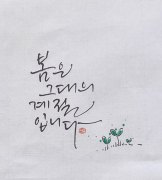 봄은
그대의
계절
입니다